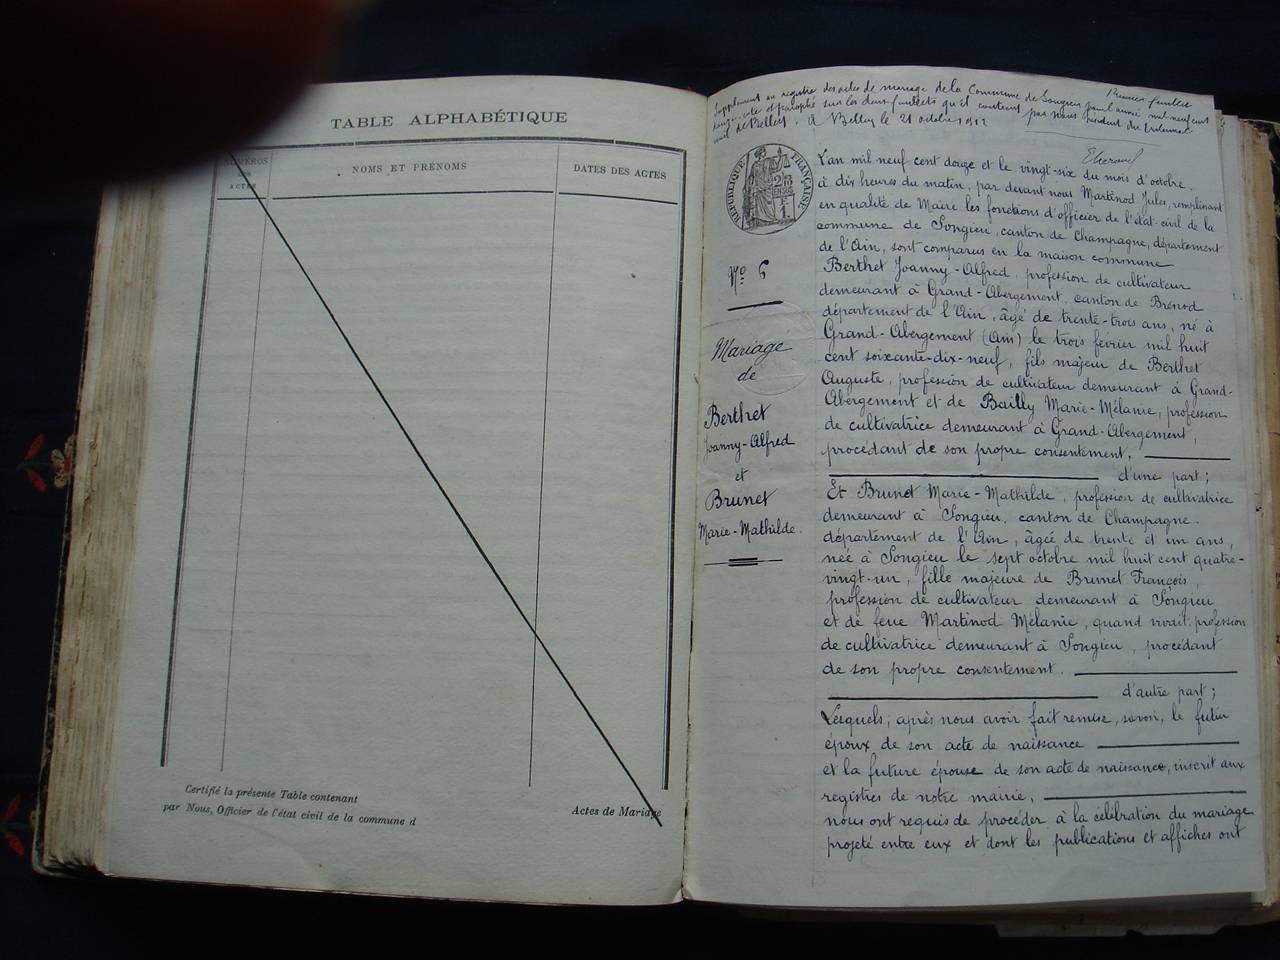 TABLE ALPHABÉTIQUE
NUMÉROS
DES
ACTES
NOMS ET PRÉNOMS
DATES DES ACTES
Certifié la présente Table contenant
Actes de Mariage
par Nous, Officier de l'état civil de la commune d
Premier feuillet
Supplément au registre des actes de mariage de la Commune de Songieu pour l'année mil neuf cent
douze, coté et paraphé sur les deux feuillets qu'il contient par nous Président du tribunal
civil de Belley. A Belley le 21 octobre 1912
RÉPUBLIQUE FRANÇAISE
N° 6
Mariage
de
Berthet
Joanny-Alfred
et
Brunet
Marie-Mathilde.
L'an mil neuf cent douze et le vingt-six du mois d'octobre,
à dix heures du matin, par devant nous Martinod Jules, remplissant
en qualité de Maire les fonctions d'officier de l'état-civil de la
commune de Songieu, canton de Champagne, département
de l'Ain, sont comparus en la maison commune
Berthet Joanny-Alfred, profession de cultivateur
demeurant à Grand-Abergement, canton de Brénod
département de l'Ain, âgé de trente-trois ans, né à
Grand-Abergement (Ain) le trois février mil huit
cent soixante-dix-neuf, fils majeur de Berthet
Auguste, profession de cultivateur demeurant à Grand-
Abergement et de Bailly Marie-Mélanie, profession
de cultivatrice demeurant à Grand-Abergement,
procédant de son propre consentement,
d'une part;
Et Brunet Marie-Mathilde, profession de cultivatrice
demeurant à Songieu, canton de Champagne,
département de l'Ain, âgée de trente et un ans,
née à Songieu le sept octobre mil huit cent quatre-
vingt-un, fille majeure de Brunet François,
profession de cultivateur demeurant à Songieu
et de feue Martinod Mélanie, quand vivait profession
de cultivatrice demeurant à Songieu, procédant
de son propre consentement.
d'autre part;
Lesquels; après nous avoir fait remise, savoir, le futur
époux de son acte de naissance
et la future épouse de son acte de naissance, inscrit aux
registres de notre mairie,
nous ont requis de procéder à la célébration du mariage
projeté entre eux et dont les publications et affiches ont